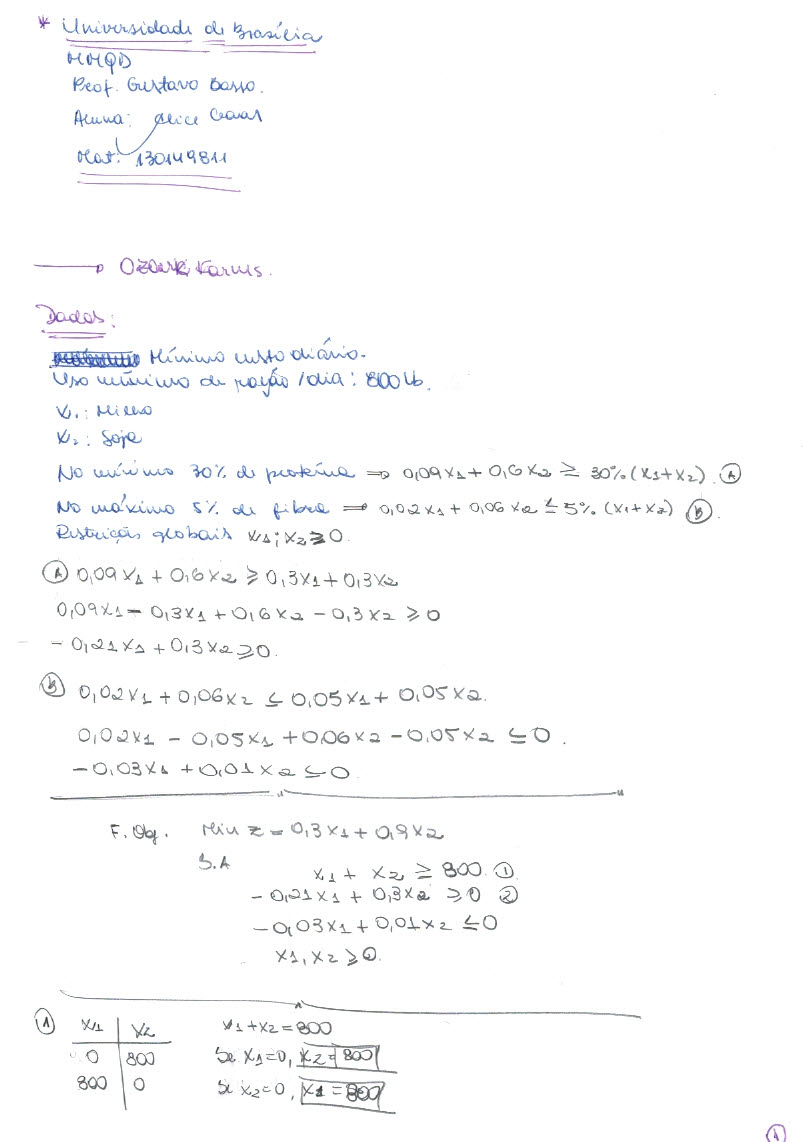 * Universidade de Brasília
MMQD
Prof. Gustavo Basso.
Aluna: Alice
Mat: 130149811
Ozark Farms.
Dados:
Mínimo custo diário.
Uso mínimo de ração/dia: 800 lb.
X₁: Milho
X₂: Soja
No mínimo 30% de proteína ⇒ 0,09X1 + 0,6X2 ≥ 30% (X1+X2). Ⓐ
No máximo 5% de fibra ⇒ 0,02X1 + 0,06X2 ≤ 5% (X1+X2) Ⓑ.
Restrições globais X1; X2 ≥ 0.
Ⓐ 0,09X1 + 0,6X2 ≥ 0,3X1 + 0,3X2
0,09X1 - 0,3X1 + 0,6X2 - 0,3X2 ≥ 0
- 0,21X1 + 0,3X2 ≥ 0.
Ⓑ 0,02X1 + 0,06X2 ≤ 0,05X1 + 0,05X2.
0,02X1 - 0,05X1 + 0,06X2 - 0,05X2 ≤ 0.
- 0,03X1 + 0,01X2 ≤ 0.
F. Obj. Min z = 0,3X1 + 0,9X2
S.A
X1 + X2 ≥ 800. ①
- 0,21X1 + 0,3X2 ≥ 0 ②
- 0,03X1 + 0,01X2 ≤ 0
X1, X2 ≥ 0.
① X1 X2 X1 + X2 = 800
0 800 Se X1=0, X2 = 800
800 0 Se X2=0, X1 = 800
①